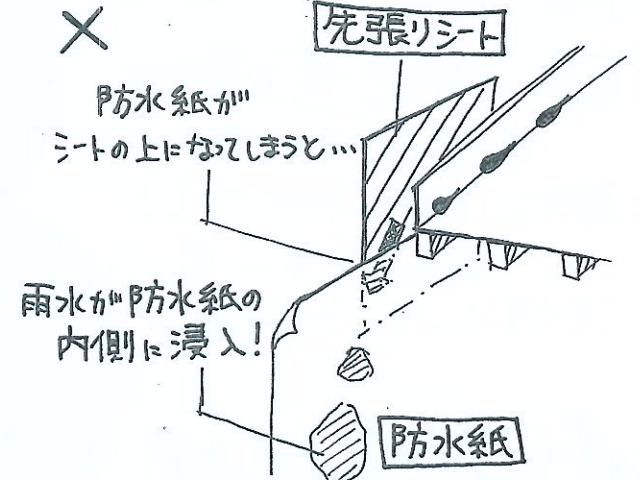 ×
先張りシート
防水紙が
シートの上になってしまうと…
雨水が防水紙の
内側に浸入!
防水紙